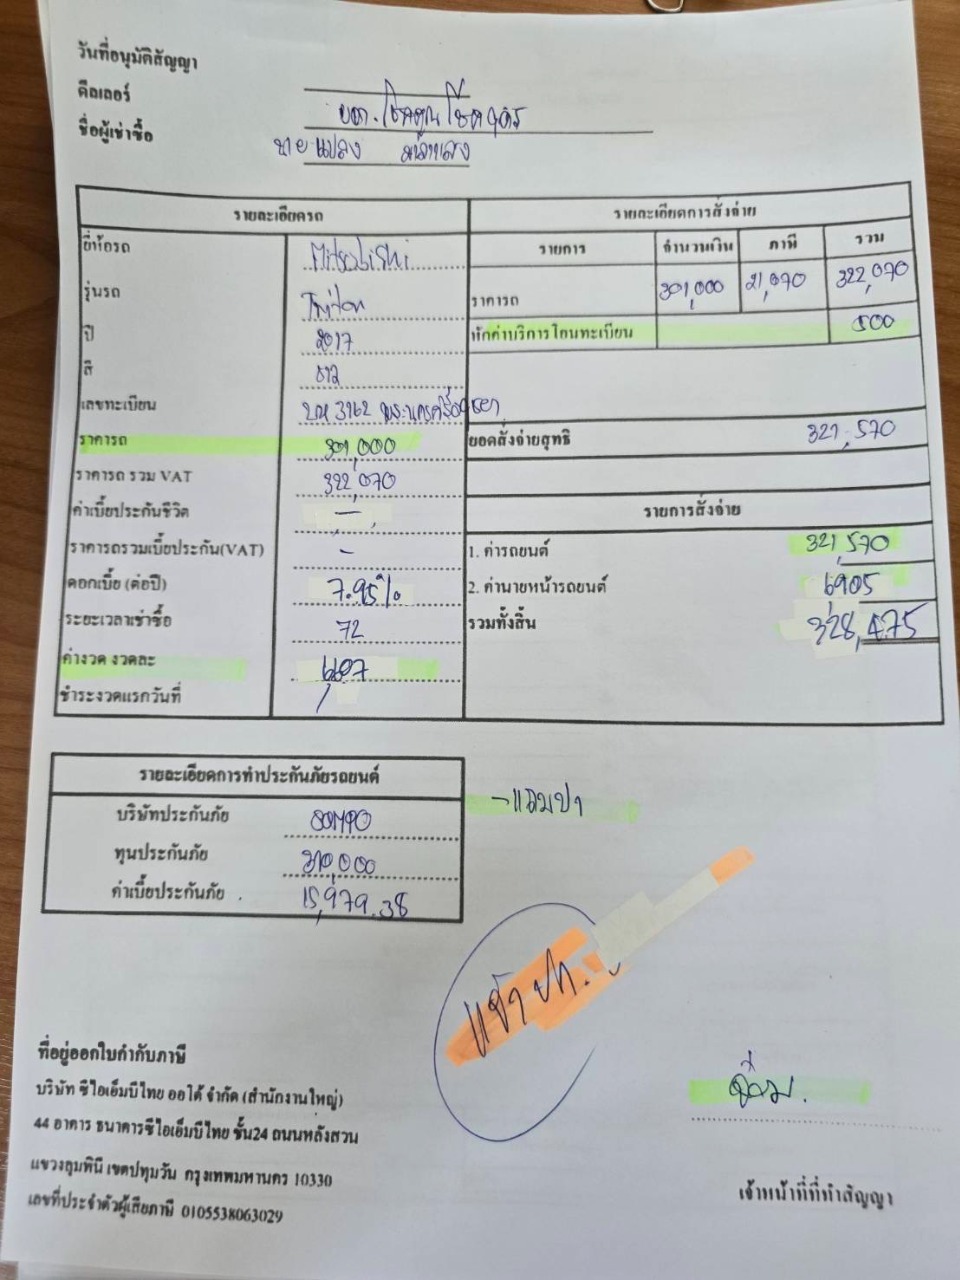 วันที่อนุมัติสัญญา
ดีลเลอร์ บจก. โชคคูณโชค
ชื่อผู้เช่าซื้อ นายแปลง
รายละเอียดรถ
ยี่ห้อรถ Mitsubishi
รุ่นรถ Triton
ปี 2017
สี ขาว
เลขทะเบียน 3162 พระนครศรีอยุธยา
ราคารถ 301,000
ราคารถ รวม VAT 322,070
ค่าเบี้ยประกันชีวิต -
ราคารถรวมเบี้ยประกัน(VAT) -
ดอกเบี้ย (ต่อปี) 7.95%
ระยะเวลาเช่าซื้อ 72
ค่างวด งวดละ 6,607
ชำระงวดแรกวันที่
รายละเอียดการสั่งจ่าย
รายการ จำนวนเงิน ภาษี รวม
ราคารถ 301,000 21,070 322,070
หักค่าบริการโอนทะเบียน 500
ยอดสั่งจ่ายสุทธิ 321,570
รายการสั่งจ่าย
1. ค่ารถยนต์ 321,570
2. ค่านายหน้ารถยนต์ 6,905
รวมทั้งสิ้น 328,475
รายละเอียดการทำประกันภัยรถยนต์
บริษัทประกันภัย SOMPO
ทุนประกันภัย 310,000
ค่าเบี้ยประกันภัย 15,979.38
- แถมปา
แจ้ง ปก.
ที่อยู่ออกใบกำกับภาษี
บริษัท ซีไอเอ็มบีไทย ออโต้ จำกัด (สำนักงานใหญ่)
44 อาคาร ธนาคารซีไอเอ็มบีไทย ชั้น24 ถนนหลังสวน
แขวงลุมพินี เขตปทุมวัน กรุงเทพมหานคร 10330
เลขที่ประจำตัวผู้เสียภาษี 0105538063029
เจ้าหน้าที่ที่ทำสัญญา